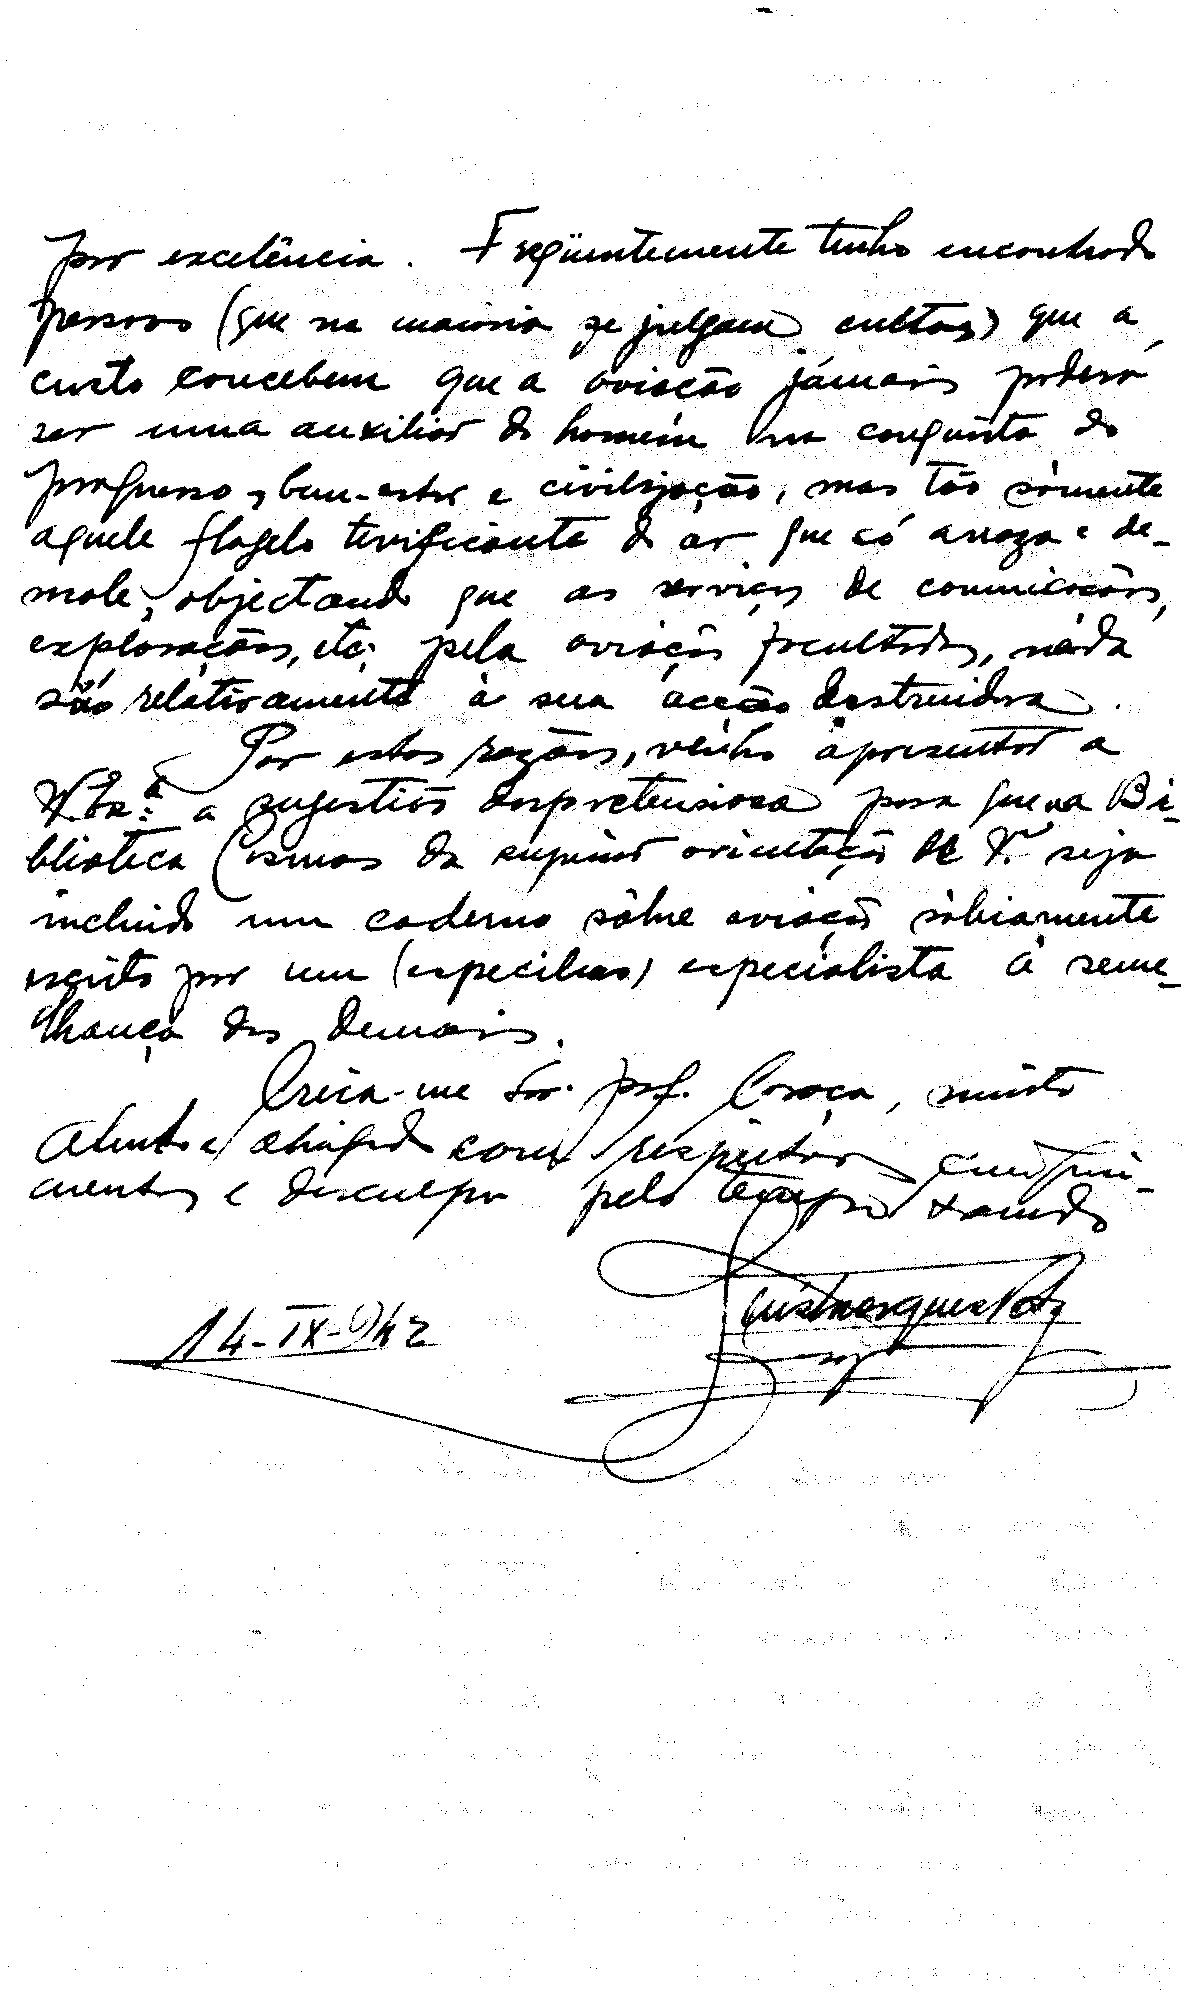 por excelência. Freqüentemente tenho encontrado
pessoas (que na maioria se julgam cultas) que a
custo concebem que a aviação jámais poderá
ser uma auxiliar do homem na conquista do
progresso, bem-estar e civilização, mas tão sòmente
aquele flagelo terrificante do ar que só arraza e de-
mole, objectando que os serviços de comunicações,
explorações, etc. pela aviação facultados, nada
são relativamente à sua acção destruidora.
Por estas razões, venho apresentar a
V. Ex.ª a sugestão despretensiosa para que na Bi-
blioteca Cosmos da superior orientação de V. seja
incluido um caderno sôbre aviação sàbiamente
escrito por um (especílimo) especialista à seme-
lhança dos demais.
Creia-me Snr. prof. Caraça, muito
atento e obrigado com respeitosos cumpri-
mentos e desculpa pelo tempo tomado
14-IX-942